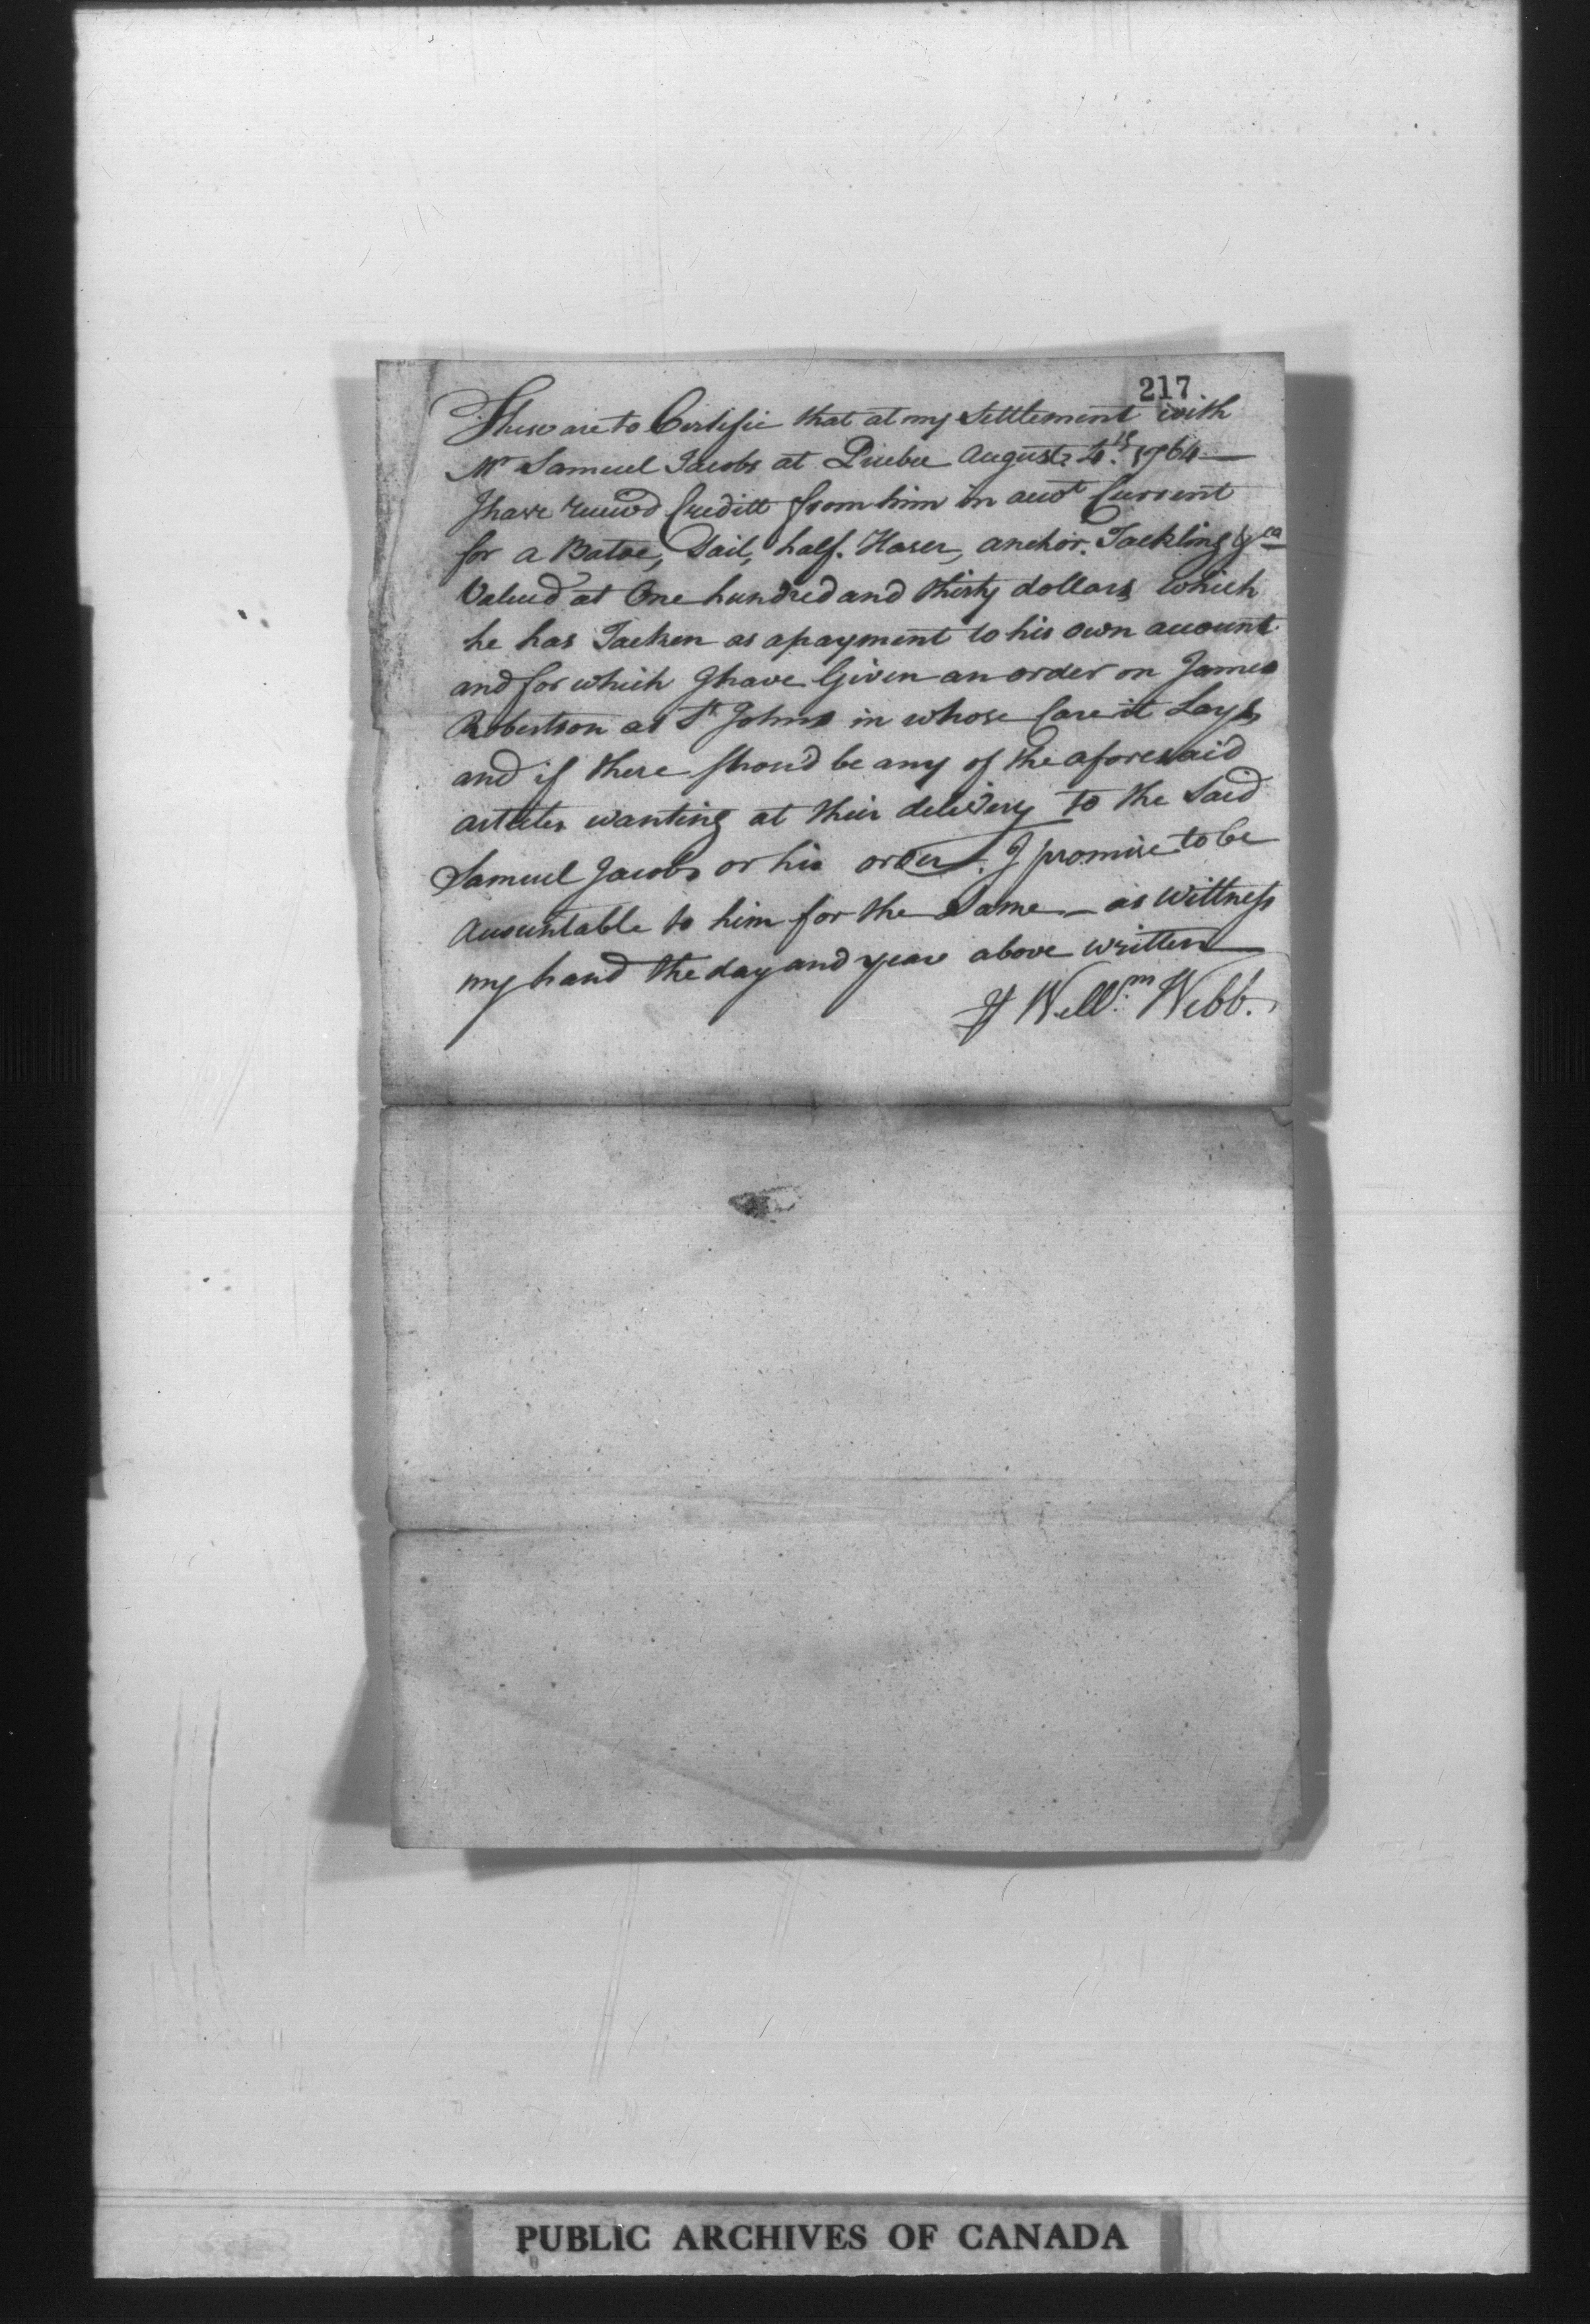 217
These are to Certifie that at my Settlement with
Mr Samuel Jacobs at Quebec August 4th 1764
I have receiv'd Creditt from him in acct Current
for a Batoe, Sail, half Haser, anchor. Tackling &ca
Valued at One hundred and thirty dollars which
he has Tacken as a payment to his own account
and for which I have Given an order on James
Robertson at St Johns in whose Care it Lays,
and if there shou'd be any of the aforesaid
artcles wanting at their delivery to the said
Samuel Jacobs or his order. I promise to be
Accountable to him for the Same – as Wittness
my hand the day and year above written
Will:m Webb.
PUBLIC ARCHIVES OF CANADA